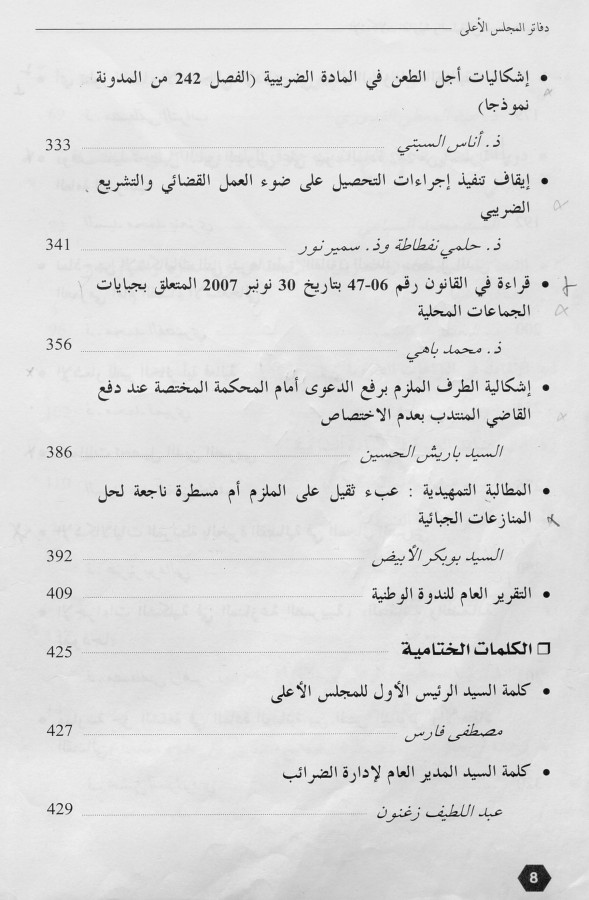 دفاتر المجلس الأعلى
• إشكاليات أجل الطعن في المادة الضريبية (الفصل 242 من المدونة
نموذجا)
ذ. أناس السبتي 333
• إيقاف تنفيذ إجراءات التحصيل على ضوء العمل القضائي والتشريع
الضريبي
ذ. حلمي نفطاطة وذ. سمير نور 341
• قراءة في القانون رقم 06-47 بتاريخ 30 نونبر 2007 المتعلق بجبايات
الجماعات المحلية
ذ. محمد باهي 356
• إشكالية الطرف الملزم برفع الدعوى أمام المحكمة المختصة عند دفع
القاضي المنتدب بعدم الاختصاص
السيد باريش الحسين 386
• المطالبة التمهيدية : عبء ثقيل على الملزم أم مسطرة ناجعة لحل
المنازعات الجبائية
السيد بوبكر الأبيض 392
• التقرير العام للندوة الوطنية 409
❒ الكلمات الختامية 425
• كلمة السيد الرئيس الأول للمجلس الأعلى
مصطفى فارس 427
• كلمة السيد المدير العام لإدارة الضرائب
عبد اللطيف زغنون 429
8